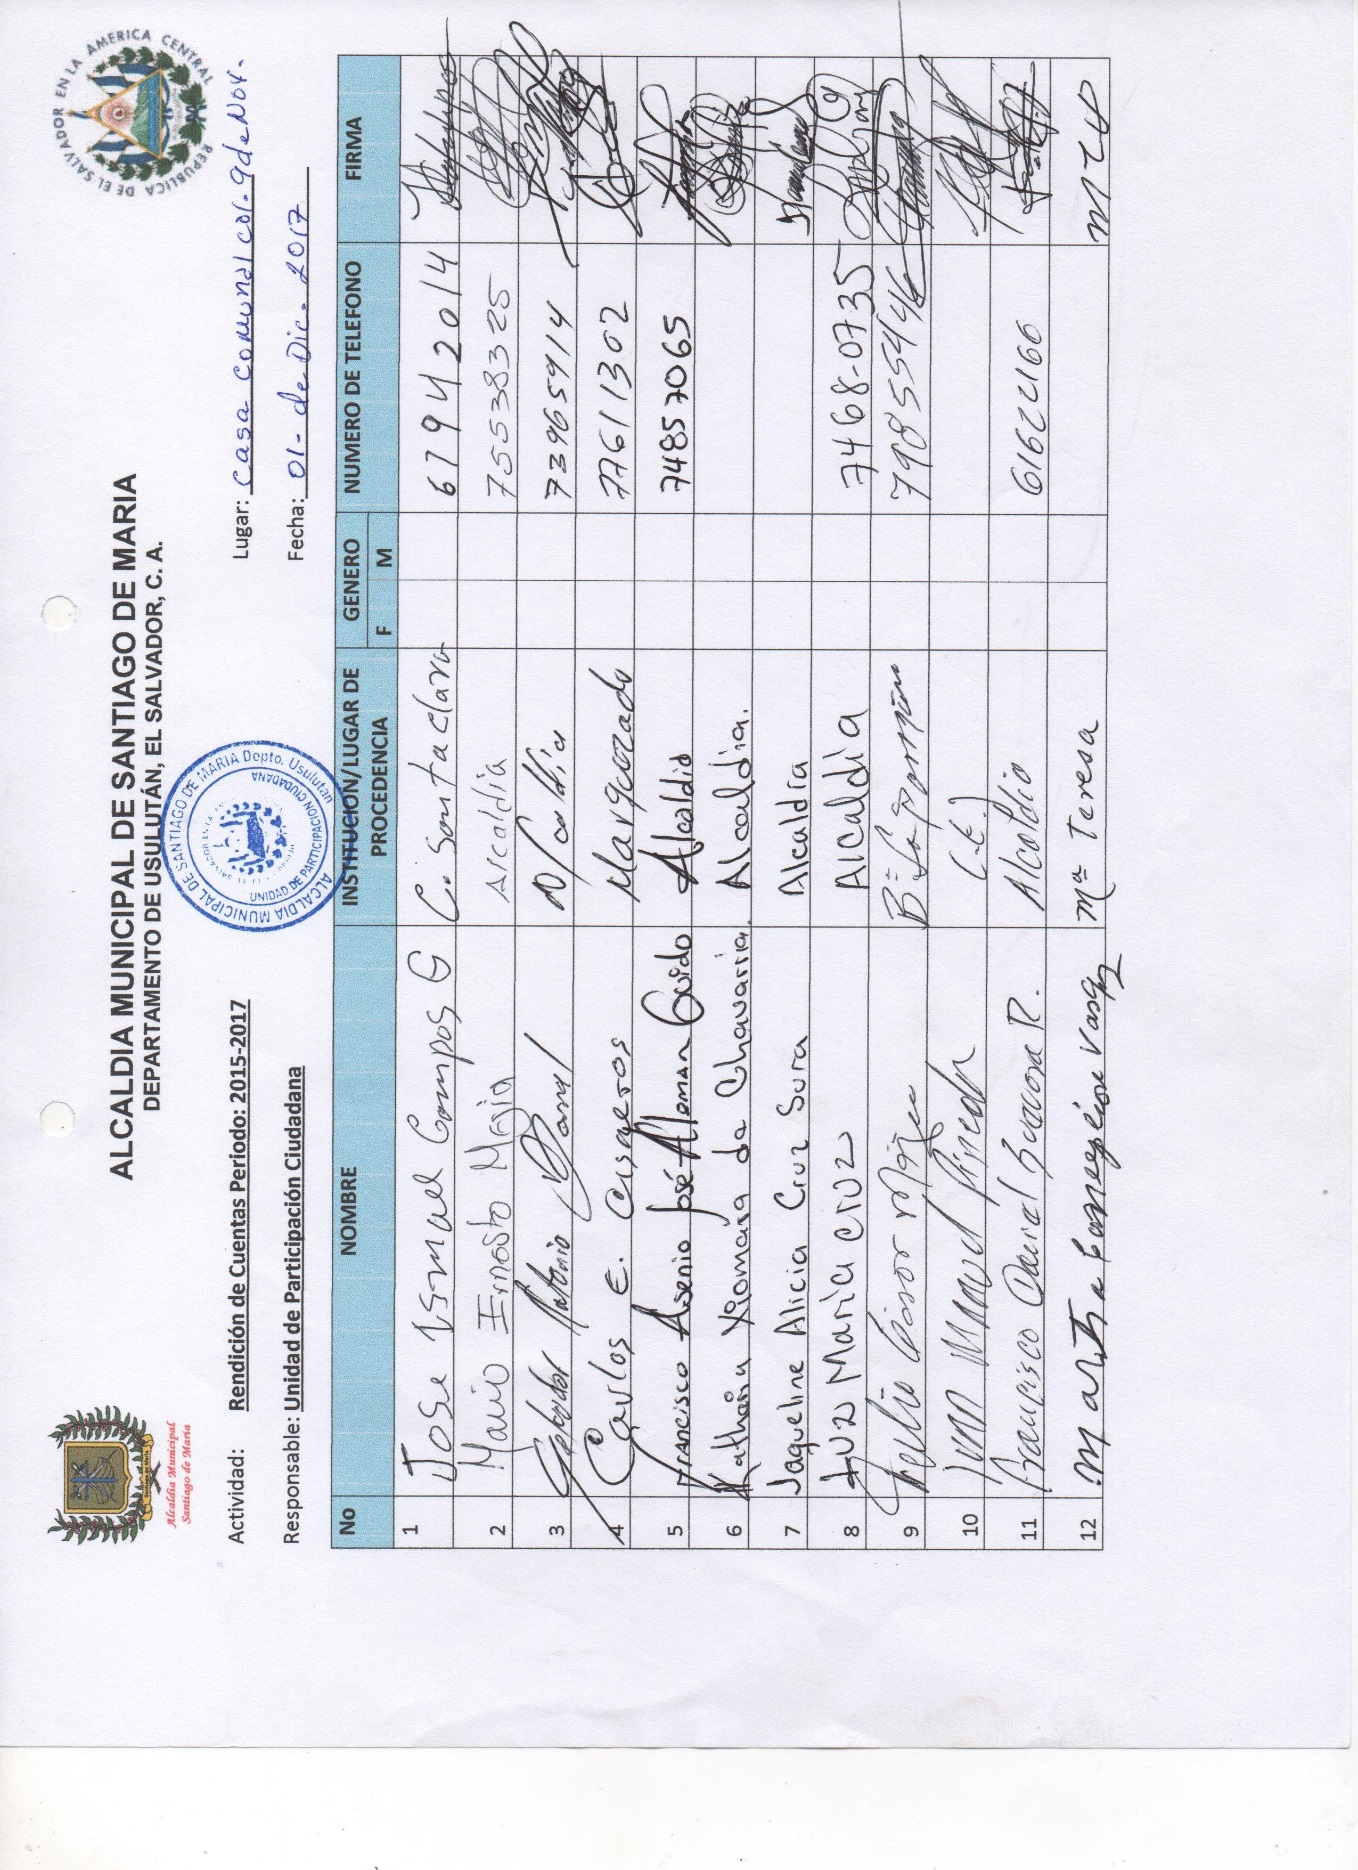 ALCALDIA MUNICIPAL DE SANTIAGO DE MARIA
DEPARTAMENTO DE USULUTÁN, EL SALVADOR, C. A.
Alcaldía Municipal
Santiago de María
REPUBLICA DE EL SALVADOR EN LA AMERICA CENTRAL
Actividad: Rendición de Cuentas Periodo: 2015-2017
Lugar: Casa Comunal col. 9 de Nov.
Responsable: Unidad de Participación Ciudadana
Fecha: 01- de Dic. 2017
ALCALDIA MUNICIPAL DE SANTIAGO DE MARIA Depto. Usulutan
UNIDAD DE PARTICIPACION CIUDADANA
No NOMBRE INSTITUCION/LUGAR DE PROCEDENCIA GENERO F M NUMERO DE TELEFONO FIRMA
1 Jose Ismael Campos G C. Santa Clara 67942014
2 Mario Ernesto Mejia Alcaldia 75538325
3 Antonio 73965914
4 Carlos E. Cisneros Marquezado 77611302
5 Francisco Asenio José Aleman Guido Alcaldia 74857065
6 Katharia Xiomara de Chavarria. Alcaldia.
7 Jaqueline Alicia Cruz Sura Alcaldia
8 Luz Maria Cruz Alcaldia 7468-0735
9 Cesar 79855446
10 Manuel Pineda
11 Francisco David R. Alcaldia
12 Marta Vasqz Mª Teresa